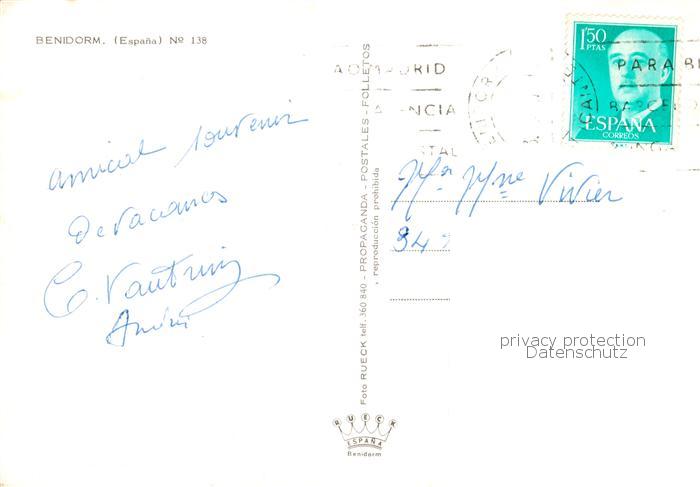 BENIDORM. (España) Nº 138
amical souvenir
De vacances
C. Vautrin
André
Foto RUECK telf. 360 840 - PROPAGANDA - POSTALES - FOLLETOS
, reproducción prohibida
RUECK
ESPAÑA
Benidorm
1'50
PTAS
ESPAÑA
CORREOS
MADRID
PARA
BARCEL
NCIA
Mr Mme Vivier
34
privacy protection
Datenschutz